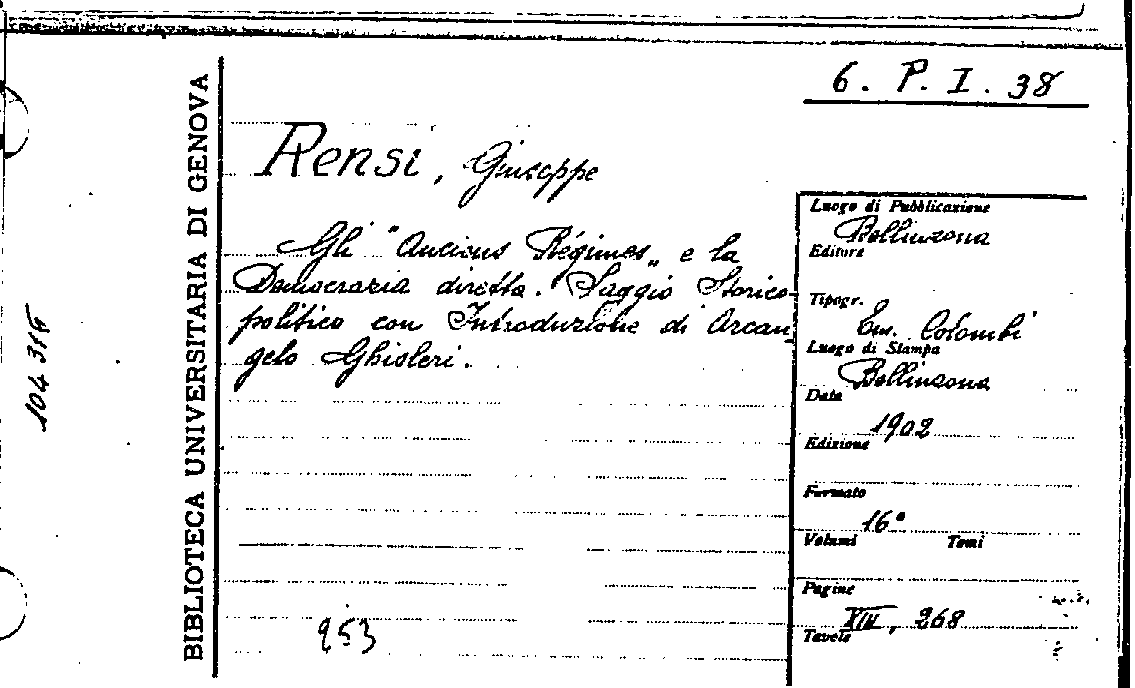 6. P. I. 38
BIBLIOTECA UNIVERSITARIA DI GENOVA
104 316
Rensi, Giuseppe
Gli "Anciens Régimes„ e la
Democrazia diretta. Saggio Storico-
politico con Introduzione di Arcan
gelo Ghisleri.
953
Luogo di Pubblicazione
Bellinzona
Editore
Tipogr.
Em. Colombi
Luogo di Stampa
Bellinzona
Data
1902
Edizione
Formato
16°
Volumi Tomi
Pagine
XIII, 268
Tavole